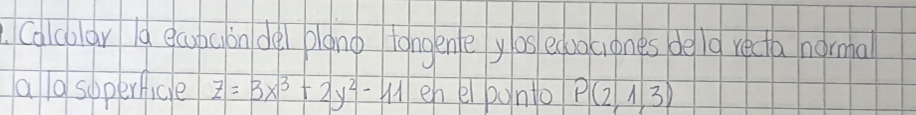 1. Calcular la ecuación del plano tangente y los ecuaciones de la recta normal
a la superficie z = 3x³ + 2y² - 11 en el punto P(2, 1, 3)